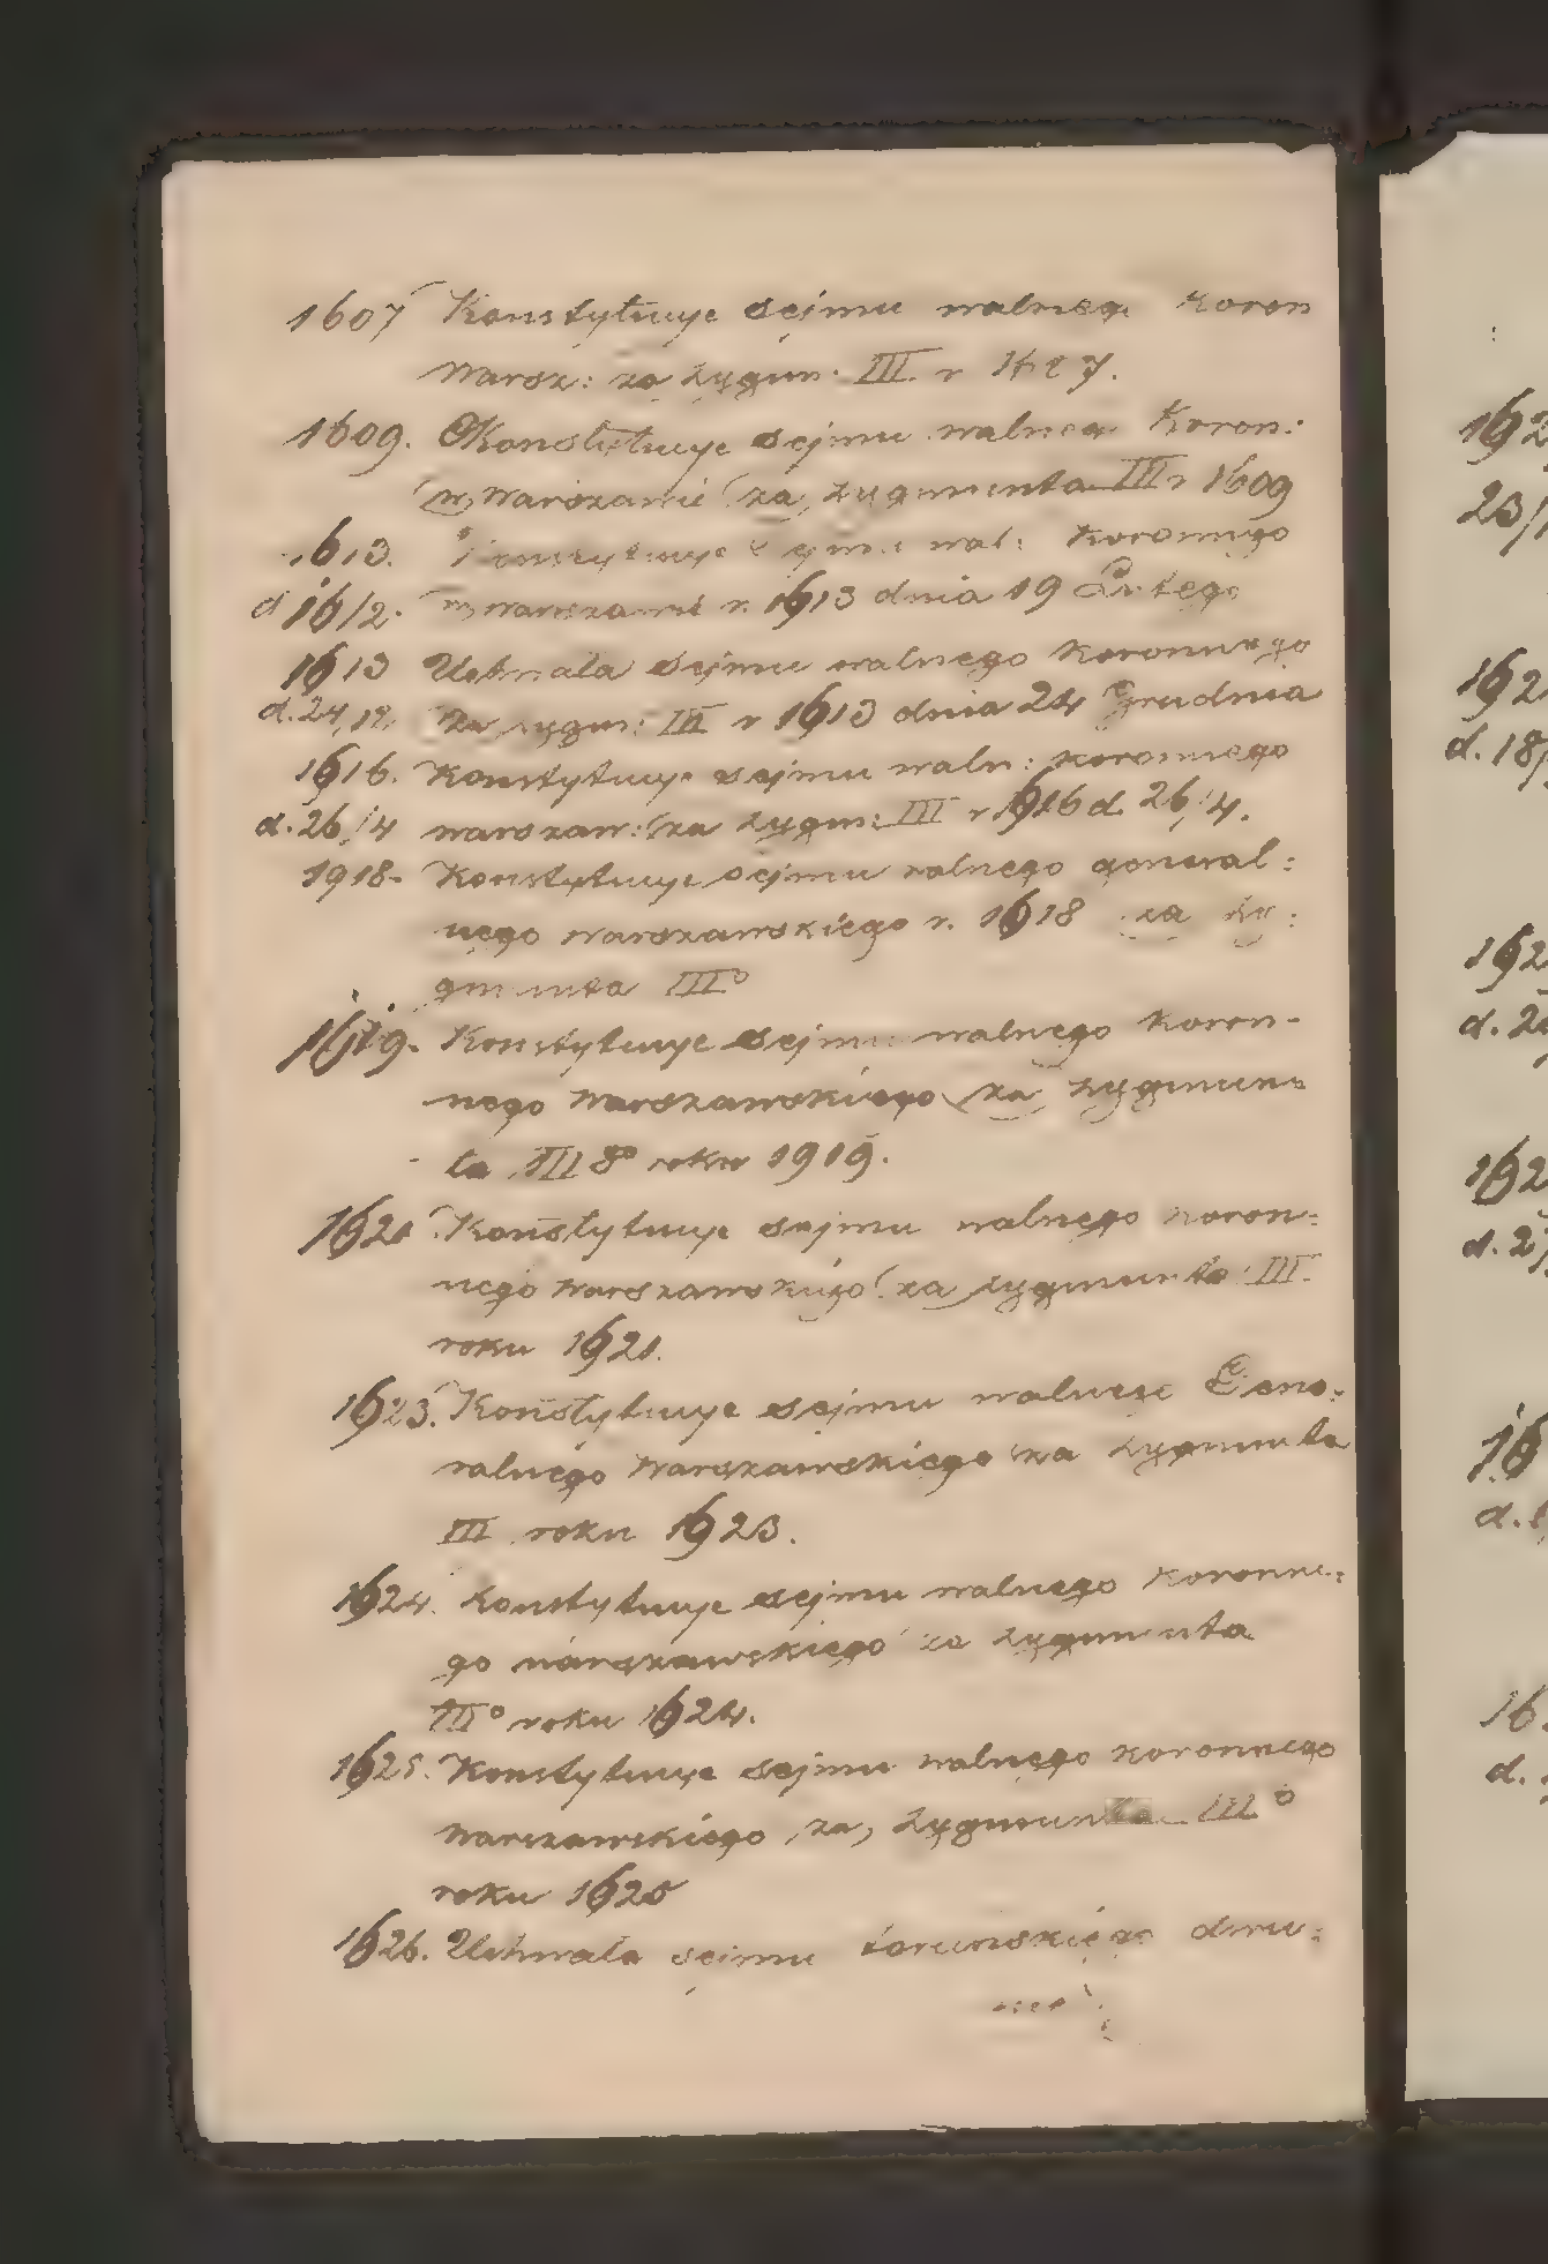 1607 Konstytucye sejmu walnego Koron
Warsz: za Zygm. III. r
1609. Konstytucye sejmu walnego Koron:
w Warszawie za Zygmunta III r 1609
1613. Konstytucye wal: Koronnego
d 16/2. w Warszawie r. 1613 dnia 19 Lutego
1613 Uchwała sejmu walnego Koronnego
d. 24/12 Za Zygm: III r 1613 dnia 24 Grudnia
1616. Konstytucye sejmu waln: koronnego
d. 26/4 warszaw: za Zygm: III r 1616 d. 26/4.
1918. Konstytucye sejmu walnego general:
nego warszawskiego r. 1618 za Zy:
gmunta III°
1619. Konstytucye sejmu walnego koron-
nego Warszawskiego za Zygmun:
ta III roku 1919.
1621 Konstytucye sejmu walnego koron:
nego Warszawskiego za Zygmunta III.
roku 1621.
1623. Konstytucye sejmu walnego Gene:
ralnego Warszawskiego za Zygmunta
III roku 1623.
1624. Konstytucye sejmu walnego koronne:
go warszawskiego za Zygmunta
III° roku 1624.
1625. Konstytucye sejmu walnego koronnego
Warszawskiego za Zygmunta III°
roku 1625
1626. Uchwała sejmu toruńskiego dwu:
162
23/
162
d. 18/
162
d. 2
162
d. 2/
16
d.
16
d.